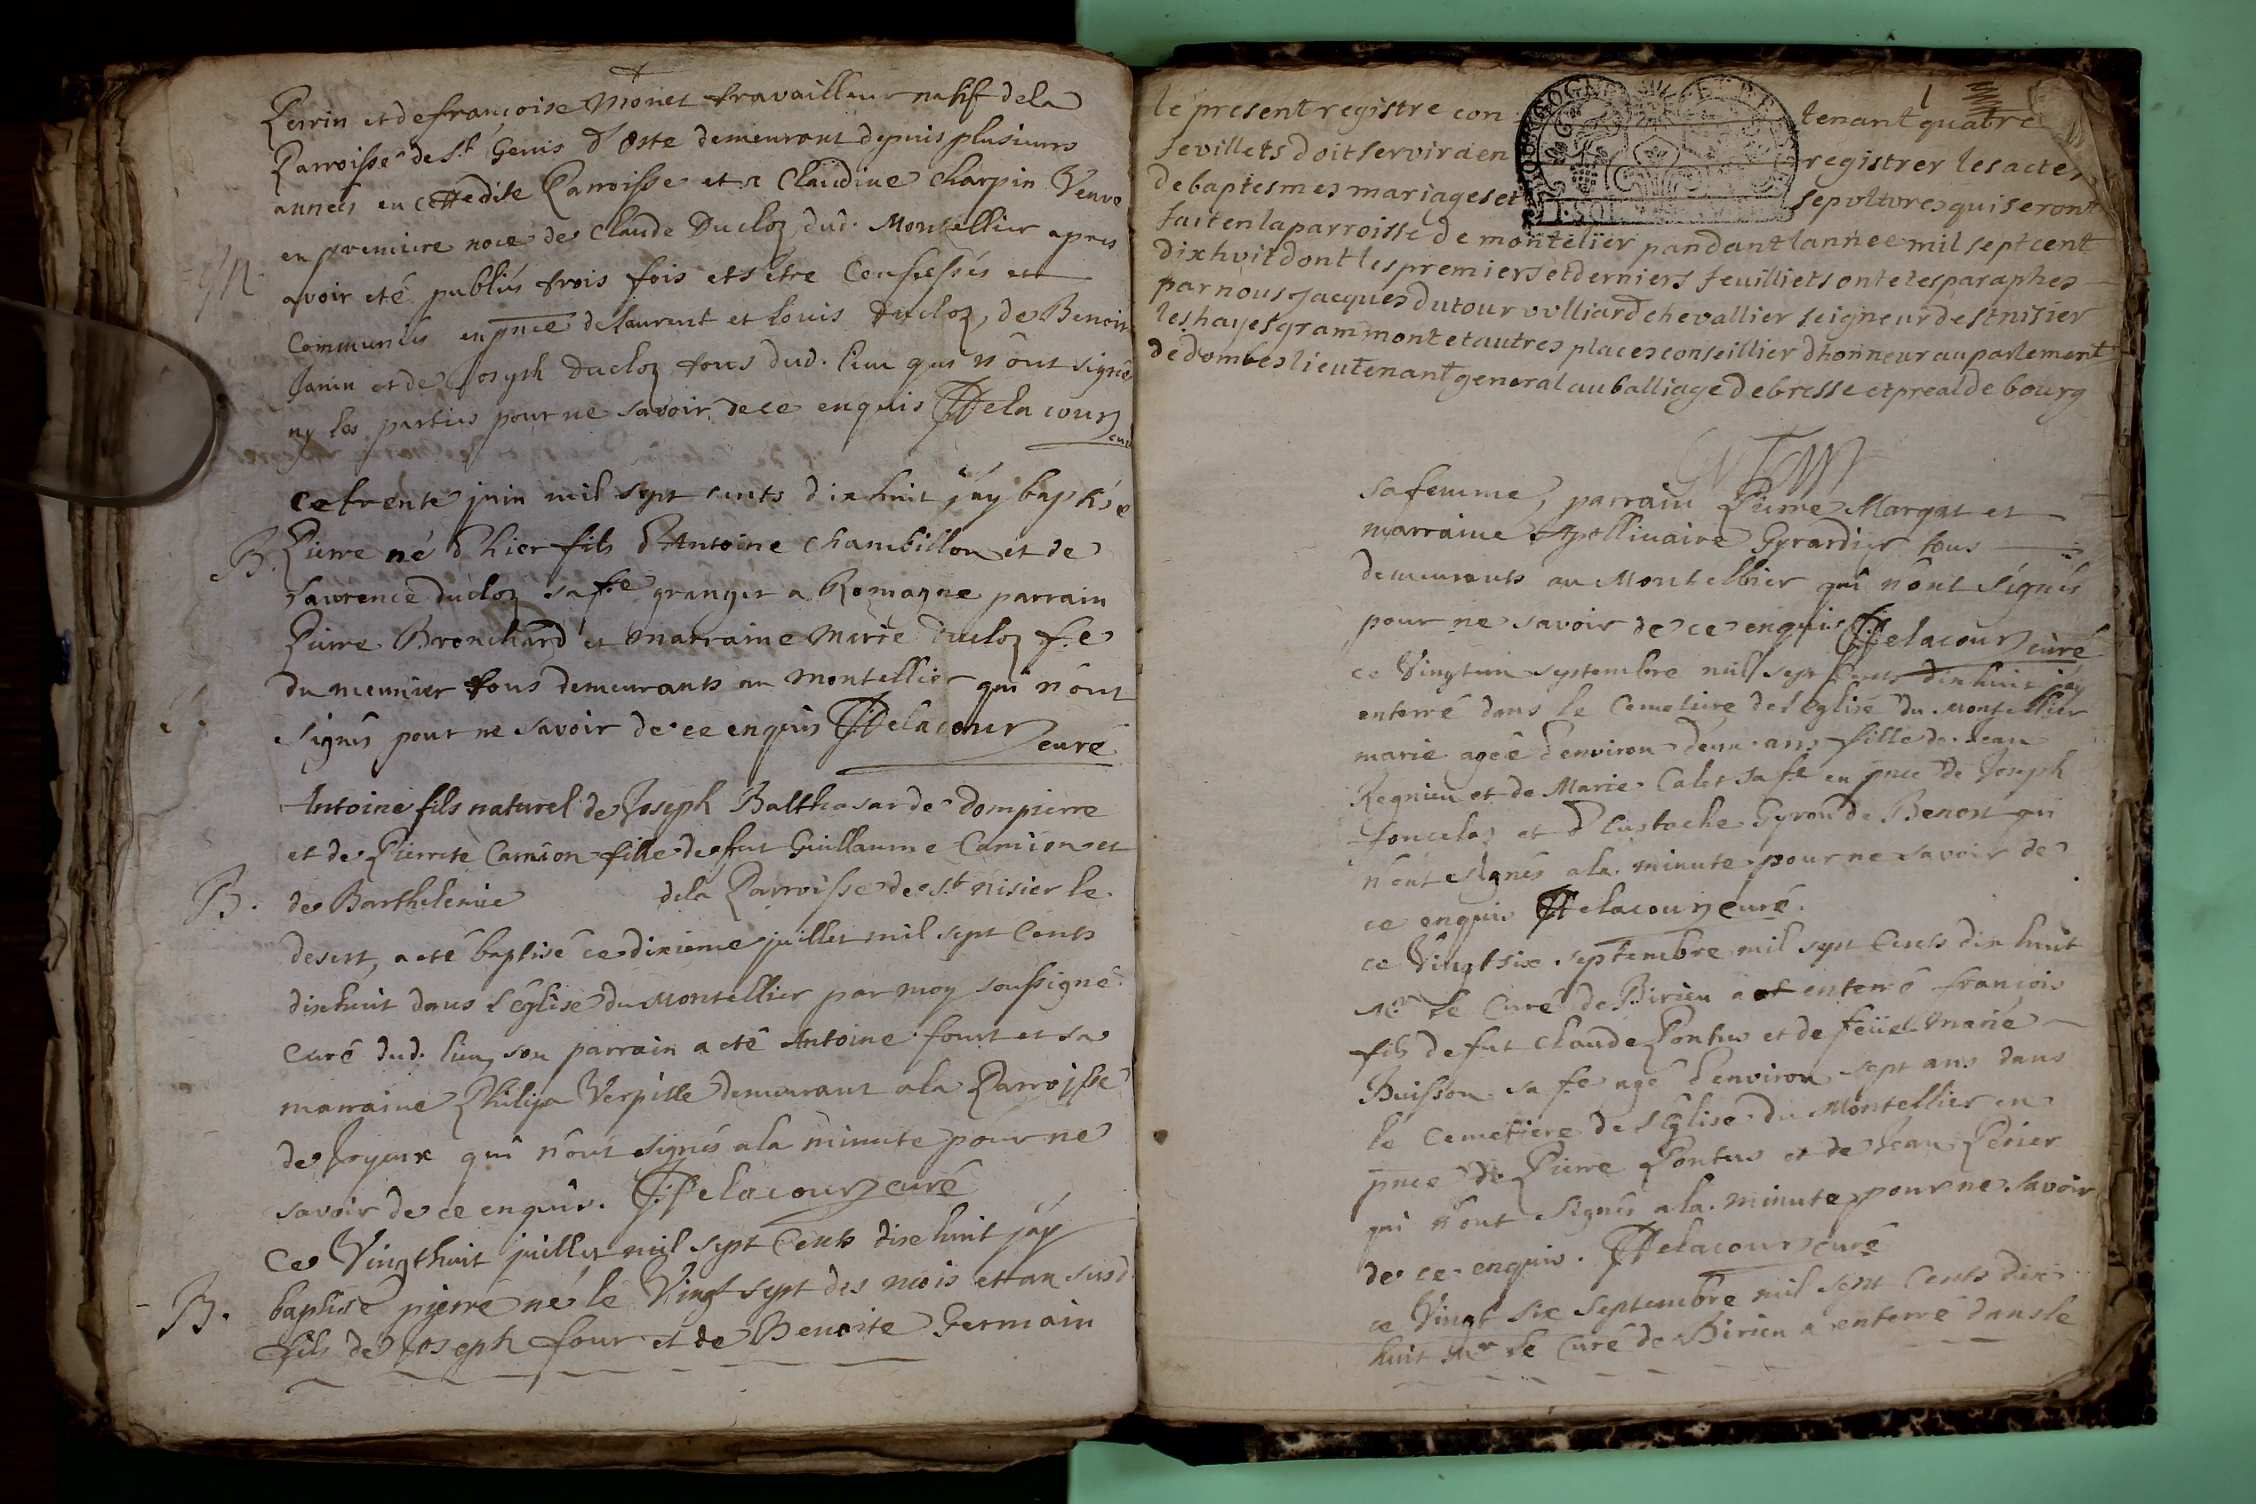 Perrin et de françoise Monet travailleur natif de la
Parroisse de St Genis d'Oste demeurant depuis plusieurs
années en cettedite Parroisse et a Claudine Charpin Veuve
en premiere noce de Claude Ducloz dud. Montellier apres
avoir eté publiés trois fois et s'etre Confessés et
Communiés en pnce de laurent et louis Ducloz, de Benoit
Janin et de Joseph Ducloz tous dud. lieu qui n'ont signé
ny les parties pour ne savoir de ce enquis Delacour
curé
M.
ce trente juin mil sept cents dixhuit j'ay baptisé
B. Pierre né d'hier fils d'Antoine Chambillon et de
Laurence ducloz sa fe granger a Romagne parrain
Pierre Bronchard et marraine Marie Ducloz fe
du meunier tous demeurants au montellier qui n'ont
signés pour ne savoir de ce enquis Delacour curé
Antoine fils naturel de Joseph Balthasar de dompierre
et de Pierrete Camion fille de fut Guillaume Camion et
B. de Barthelemie de la Parroisse de St nisier le
desert, a eté baptisé ce dixieme juillet mil sept Cents
dixhuit dans l'Eglise du Montellier par moy soussigné
Curé dud. lieu, son parrain a eté Antoine four et sa
marraine Philipa Verpille demeurant a la Parroisse
de Joyeux qui n'ont signés a la minute pour ne
savoir de ce enquis. Delacour curé
Ce Vingthuit juillet mil sept Cents dixhuit j'ay
B. baptisé pierre né le Vingt sept des mois et an susd
fils de Joseph four et de Benoite Germain
1
le present registre contenant quatre
fevillets doit servir a enregistrer les actes
de baptesmes mariages et sepvltvres qui seront
fait en la parroisse de montelier pandant lannee mil sept cent
dix hvit dont les premiers et derniers feuilliets ont etes paraphes
par nous Jacques dutour vvlliard chevallier seigneur de st nisier
les hayes grammont et autres places conseillier dhonneur au parlement
de dombes lieutenant general au balliage de bresse et preal de bourg
sa femme, parrain Pierre Margat et
marraine Apollinaire Gyrardier tous
demeurants au Montellier qui n'ont signés
pour ne savoir de ce enquis Delacour curé
ce Vingtun septembre mil sept Cents dixhuit j'ay
enterré dans le Cemetiere de l'Eglise du Montellier
marie ageé d'environ deux ans fille de Jean
Regnieu et de Marie Calet sa fe en pnce de Joseph
Joncelaz et d'Eustache Gyron de Benost qui
n'ont signés a la minute pour ne savoir de
ce enquis Delacour curé.
ce Vingt six septembre mil sept Cents dix huit
Mr le Curé de Birieu a enterré françois
fils de fut Claude Pontus et de feüe Marie
Buisson sa fe agé d'environ sept ans dans
le Cemetiere de l'Eglise du Montellier en
pnce de Pierre Pontus et de Jean Perier
qui n'ont signés a la minute pour ne savoir
de ce enquis. Delacour curé
ce Vingt six septembre mil sept Cents dix
huit Mr le Curé de Birieu a enterré dans le